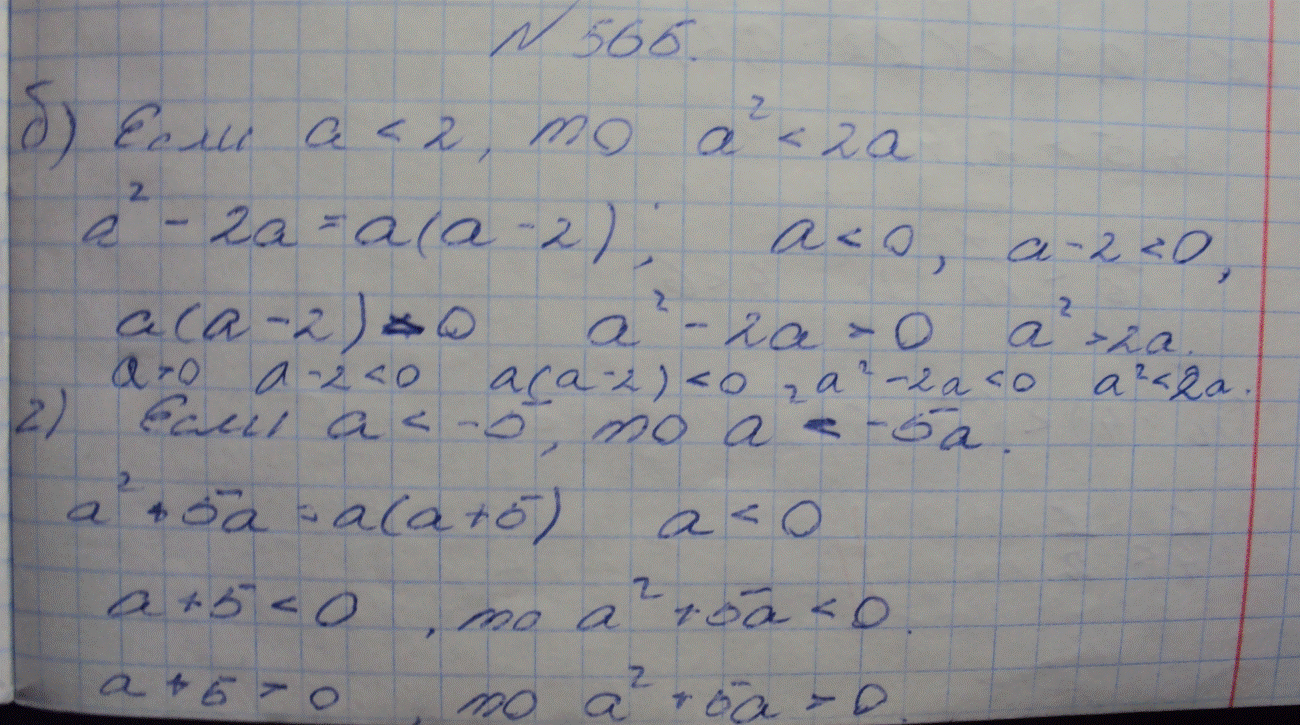 N 566.
б) Если a < 2, то a² < 2a
a² - 2a = a(a - 2); a < 0, a - 2 < 0,
a(a - 2) > 0 a² - 2a > 0 a² > 2a.
a > 0 a - 2 < 0 a(a - 2) < 0, a² - 2a < 0 a² < 2a.
г) Если a < -5, то a² < -5a.
a² + 5a = a(a + 5) a < 0
a + 5 < 0, то a² + 5a < 0.
a + 5 > 0, то a² + 5a > 0.